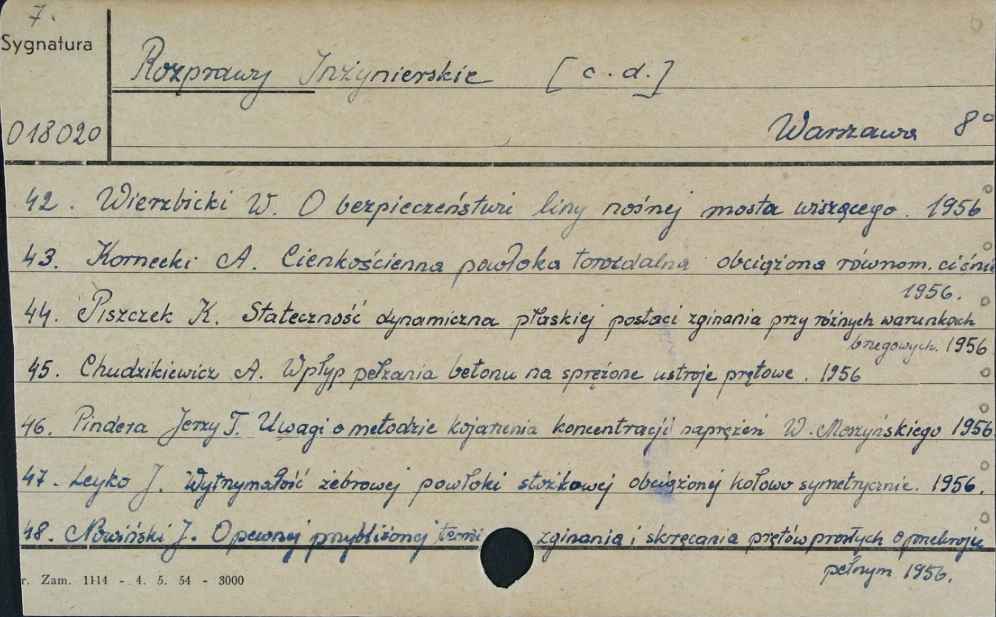 7.
6
Sygnatura
Rozprawy Inżynierskie [c.d.]
018020
Warszawa 8°
42. Wierzbicki W. O bezpieczeństwie liny nośnej mostu wiszącego. 1956
43. Kornecki A. Cienkościenna powłoka toroidalna obciążona równom. ciśnie
1956.
44. Piszczek K. Stateczność dynamiczna płaskiej postaci zginania przy różnych warunkach
brzegowych. 1956
45. Chudzikiewicz A. Wpływ pełzania betonu na sprężone ustroje prętowe. 1956
46. Pindera Jerzy T. Uwagi o metodzie kojarzenia koncentracji naprężeń W. Moszyńskiego 1956
47. Leyko J. Wytrzymałość żebrowej powłoki stożkowej obciążonej kołowo symetrycznie. 1956.
48. Nowiński J. O pewnej przybliżonej teorii zginania i skręcania prętów prostych o przekroju
pełnym 1956.
r. Zam. 1114 - 4. 5. 54 - 3000